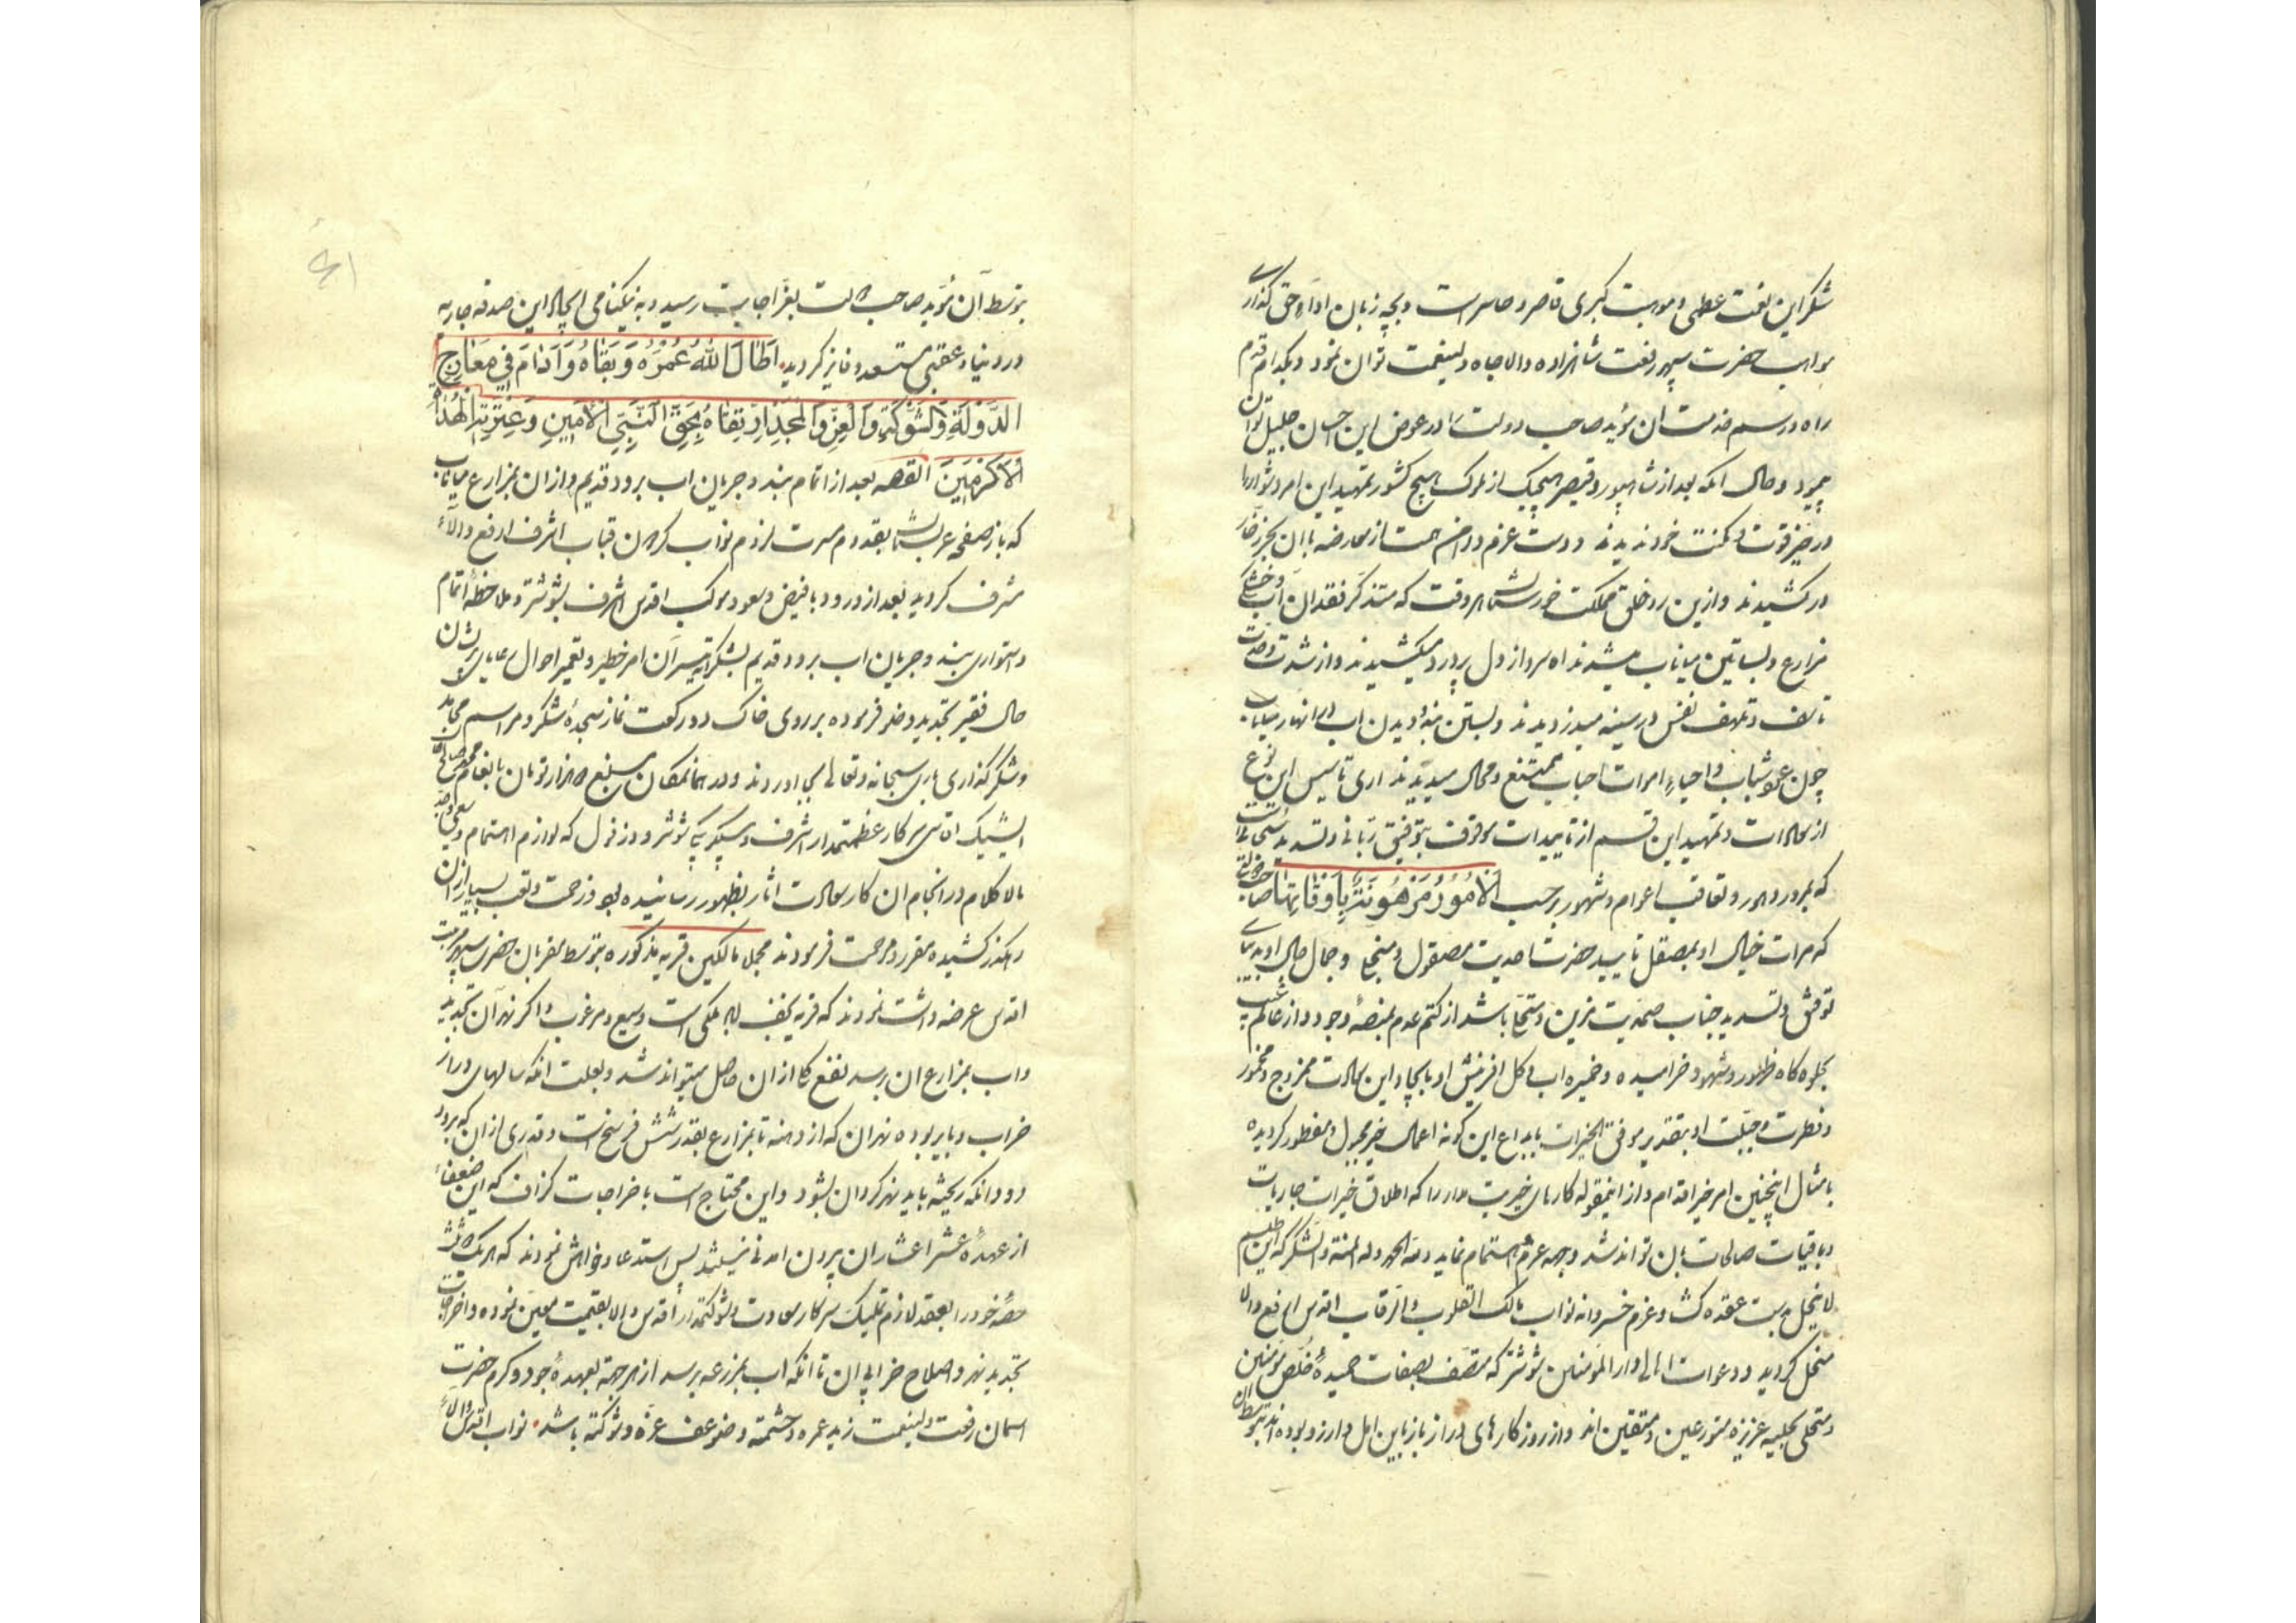 شکر این نعمت عظمی و موهبت کبری قاصر و حاسر است و بچه زبان اداء حق گذاری
مواهب حضرت سپهر رفعت شاهزاده والاجاه ولینعمت توان نمود و بکدام قدم
راه و رسم خدمت آن مؤید صاحب دولت را در عوض این احسان جلیل توان
پیمود و حال آنکه بعد از شاپور و قیصر هیچیک از ملوک هیچ کشور تمهید این امر دشوار را
در حیز قوت و مکنت خود ندیدند و دست عزم و دامن همت از معارضه با آن بحر زخار
در کشیدند و ازین رو خلق مملکت خورستان هر وقت که متذکر فقدان آب و خشکی
مزارع و بساتین میاناب میشدند آه سرد از دل پر درد میکشیدند و از شدت
تأسف و تلهف نفس در سینه میدزدیدند و بستن بند و دیدن آب در انهار میاناب
چون عود شباب و احیاء اموات احباب ممتنع و محال میدیدند آری تأسیس این نوع
از سعادات و تمهید این قسم از تأییدات موقوف بتوفیق ربانی و تسدید سبحانی است
که بمرور دهور و تعاقب اعوام و شهور برحسب الامور مرهونة باوقاتها صاحب دولتی
که مرآت خیال او بمصقل تأیید حضرت احدیت مصقول و منجلی و جمال حال او بدیبای
توفیق و تسدید جناب صمدیت مزین و متحلی باشد از کتم عدم بمنصه وجود و از عالم غیب
بجلوه گاه ظهور و شهود خرامیده و خمیره آب و گل آفرینش او بایجاد این سعادت ممزوج و مخمور
و فطرت و جبلت او بتقدیر موفق الخیرات بابداع این گونه اعمال خیر مجبول و مفطور گردیده
بامثال اینچنین امر خیر اقدام و از اینمقوله کارهای خیریت مدار را که اطلاق خیرات جاریات
و باقیات صالحات بان تواند شد وجهه عزم و اهتمام نماید و لله الحمد و له المنة و الشکر که این طلسم
لاینحل بدست عقده گشا و عزم خسروانه نواب مالک القلوب والرقاب اقدس ارفع والا
منحل گردید و دعوات اهالی دار المؤمنین شوشتر که متصف بصفات حمیده خلص مؤمنین
و متحلی بحلیه عزیزه متورعین و متقین اند و از روزگارهای دراز باز باین امل و آرزو بوده اند بتوسط آن
بتوسط آن مؤید صاحب دولت بعز اجابت رسید و به نیکنامی ایجاد این صدقه جاریه
در دنیا و عقبی مستسعد و فایز گردید اطال الله عمره و بقاه و ادام فی معارج
الدولة والشوکة والعز والمجد ارتقاه بحق النبی الامین و عترته الهداة
الاکرمین القصه بعد از اتمام بند و جریان آب برود قدیم و از آن بمزارع میاناب
که باز صفحه عربستان بقدوم مسرت لزوم نواب گردون قباب اشرف ارفع والاء
مشرف گردید بعد از ورود با فیض و سعود موکب اقدس اشرف بشوشتر و ملاحظه اتمام
و استواری بند و جریان آب برود قدیم بشکر تیسر آن امر خطیر و تعمیر احوال رعایای پریشان
حال فقیر تجدید وضو فرموده بر روی خاک دو رکعت نماز سجده شکر و مراسم محامد
و شکر گذاری باری سبحانه و تعالی بجا آوردند و در همانمکان مبلغ هزار تومان بانعام
ایشیک آقاسی سرکار عظمتمدار اشرف و بیگلربیگی شوشتر و دزفول که لوازم اهتمام و سعی و جد
مالاکلام در انجام آن کار سعادت آثار بظهور رسانیده بود و زحمت و تعب بسیار از آن
رهگذر کشیده مقرر و مرحمت فرمودند مجمل مالکین قریه مذکوره بتوسط مقربان حضرت سپهر مرتبت
اقدس عرضه داشت نمودند که قریه یخف لیر ملکی است وسیع و مرغوب و اگر نهر آن تجدید
و آب بمزارع آن برسد نفع کلی از آن حاصل میتواند شد و بعلت آنکه سالهای دراز
خراب و بایر بوده نهر آن که از دهنه تا بمزارع بقدر شش فرسخ است و قدری از آن که برود
دودانگه ریخته باید نهر گردان بشود و این محتاج است باخراجات گزاف که این ضعفاء
از عهده عشر اعشار آن برون آمدنی نیستند پس استدعا و خواهش نمودند که هر یک دو ثلث
حصه خود را بعقد لازم تملیک سرکار سعادت و شوکتمدار اقدس والا بقیمت معین نموده و اخراجات
تجدید نهر و اصلاح خرابی آن تا آنکه آب بمزرعه برسد از هر جهة بعهده جود و کرم حضرت
آسمان رفعت ولینعمت زید عمره و حشمته و ضوعف عزه و شوکته باشد نواب اقدس والاء